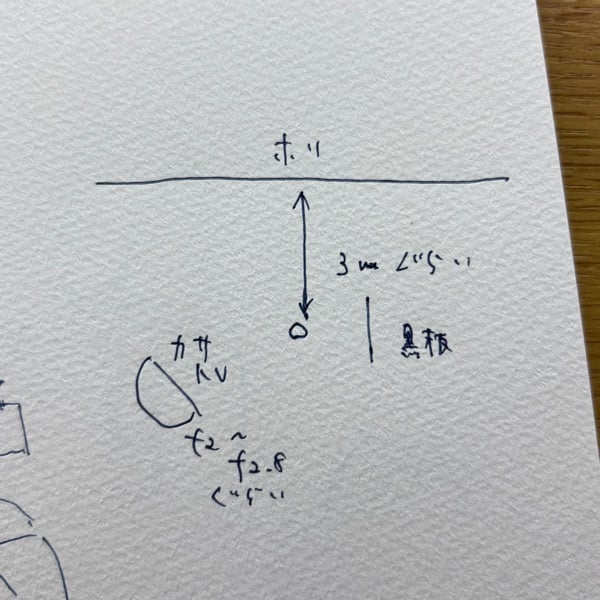 ホリ
3mぐらい
黒板
カサ
トレ
f2〜
f2.8
ぐらい